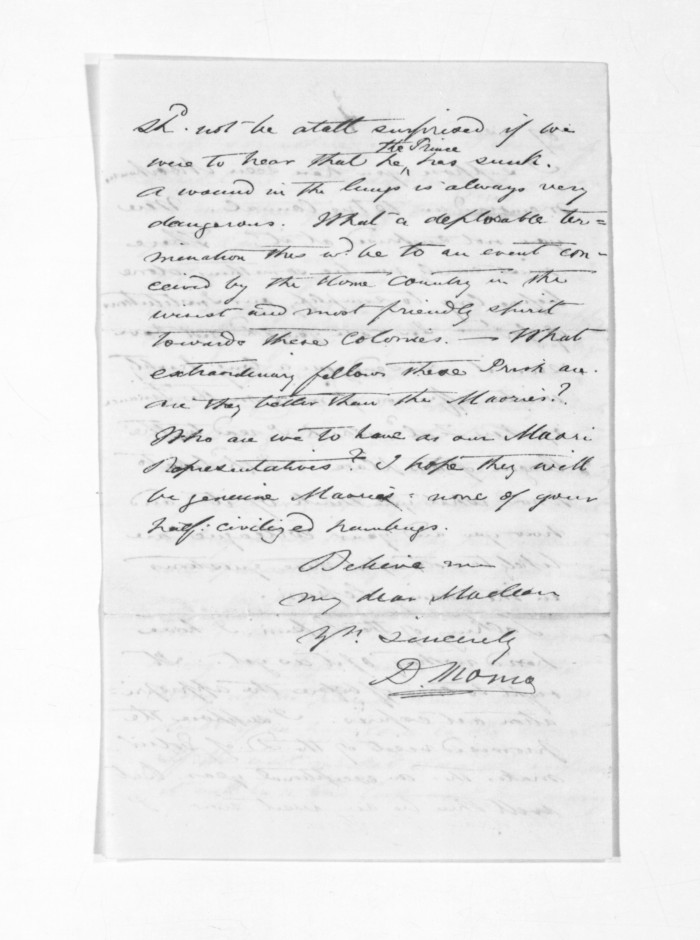 Shd. not be atall surprised if we
were to hear that he, the Prince has sunk.
A wound in the lungs is always very
dangerous. What a deplorable ter=
mination this wd. be to an event con-
ceived by the Home Country in the
wisest and most friendly spirit
towards these Colonies. — What
extraordinary fellows these Irish are.
are they better than the Maories?
Who are we to have as our Maori
Representatives? I hope they will
be genuine Maories: none of your
half: civilized humbugs.
Believe me
my dear Maclean
Yrs. sincerely
D. Monro